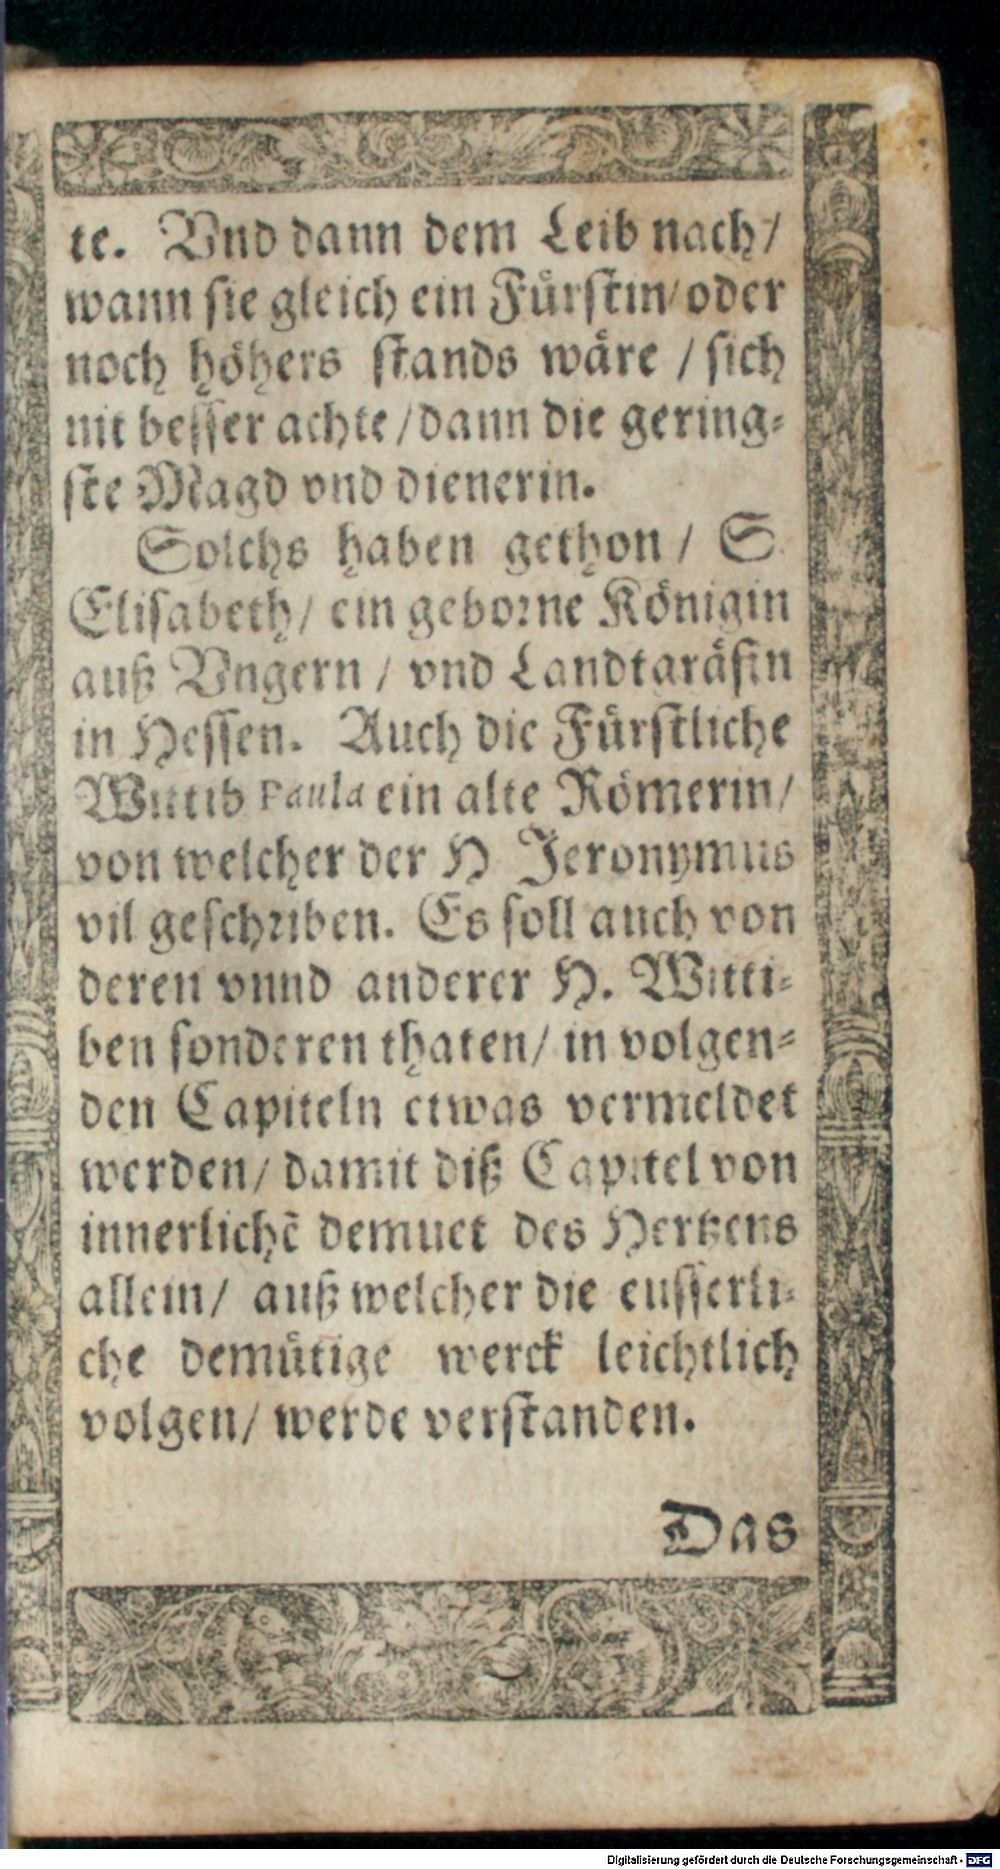 te. Vnd dann dem Leib nach/
wann sie gleich ein Fürstin/oder
noch höhers stands wäre / sich
nit besser achte/dann die gering-
ste Magd vnd dienerin.
Solchs haben gethon / S.
Elisabeth/ ein geborne Königin
auß Vngern / vnd Landtgräfin
in Hessen. Auch die Fürstliche
Wittib Paula ein alte Römerin/
von welcher der H Jeronymus
vil geschriben. Es soll auch von
deren vnnd anderer H. Witti-
ben sonderen thaten/ in volgen-
den Capiteln etwas vermeldet
werden/ damit diß Capitel von
innerlichẽ demuet des Hertzens
allein/ auß welcher die eusserli-
che demütige werck leichtlich
volgen/ werde verstanden.
Das
Digitalisierung gefördert durch die Deutsche Forschungsgemeinschaft - DFG